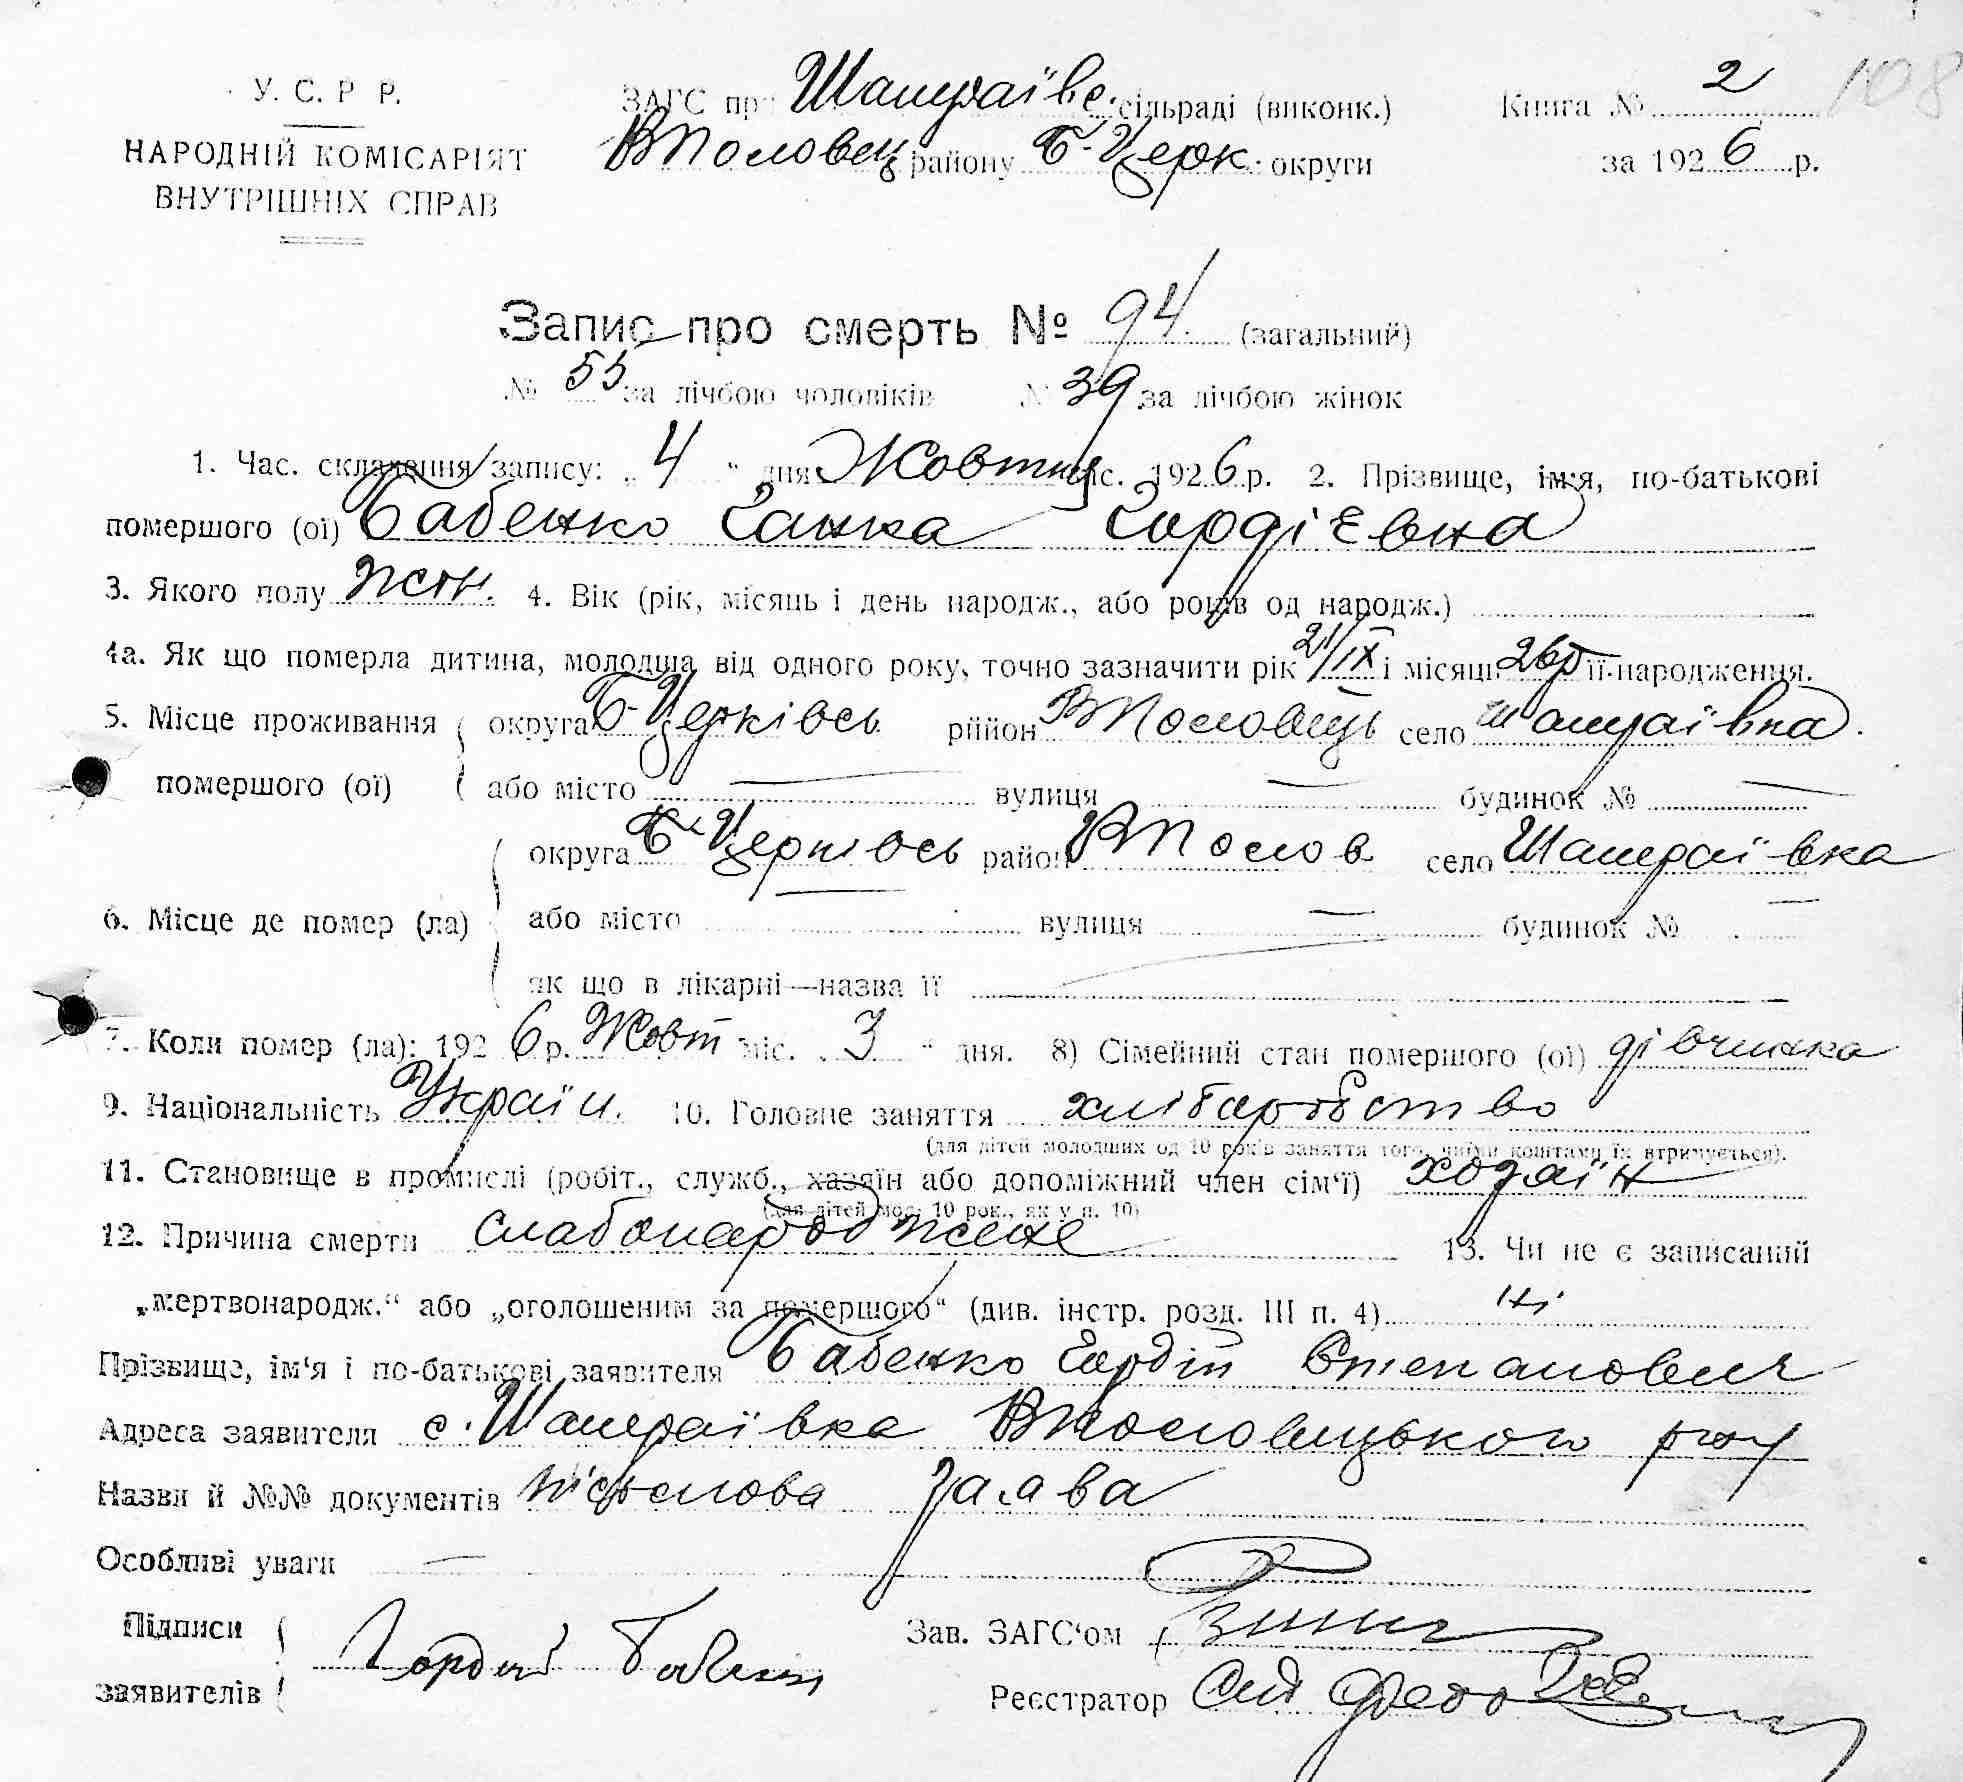 У. С. Р Р.
НАРОДНІЙ КОМІСАРІЯТ
ВНУТРІШНІХ СПРАВ
ЗАГС при Шамраївс. сільраді (виконк.)
ВПоловец району Б-Церк. округи
Книга № 2
108
за 1926 р.
Запис про смерть № 94 (загальний)
№ 55 за лічбою чоловіків № 39 за лічбою жінок
1. Час. складення запису: „ 4 “ дня Жовтня міс. 1926 р. 2. Прізвище, ім'я, по-батькові
помершого (ої) Бабенко Ганна Гордієвна
3. Якого полу жін. 4. Вік (рік, місяць і день народж., або років од народж.)
4а. Як що померла дитина, молодша від одного року, точно зазначити рік 21/IX і місяць 26р її народження.
5. Місце проживання округа Б-Церківсь район ВПоловець село Шамраївка.
помершого (ої) або місто — вулиця — будинок № —
округа Б-Церківсь район ВПолов село Шамраївка
6. Місце де помер (ла) або місто — вулиця — будинок № —
як що в лікарні—назва її —
7. Коли помер (ла): 1926 р. Жовт міс. „ 3 “ дня. 8) Сімейний стан помершого (ої) дівчинка
9. Національність Україн. 10. Головне заняття хліборобство
(для дітей молодших од 10 років заняття того, чиїми коштами їх втримується).
11. Становище в промислі (робіт., служб., хазяїн або допоміжний член сім'ї) хозяїн
(для дітей мол. 10 рок., як у п. 10)
12. Причина смерти слабонароджене 13. Чи не є записаний
„мертвонародж.“ або „оголошеним за помершого“ (див. інстр. розд. III п. 4) ні
Прізвище, ім'я і по-батькові заявителя Бабенко Гордій Степанович
Адреса заявителя с. Шамраївка ВПоловецького р-ну
Назви й №№ документів заява
Особливі уваги —
Підписи Гордий Бабенко Зав. ЗАГС'ом
заявителів Реєстратор